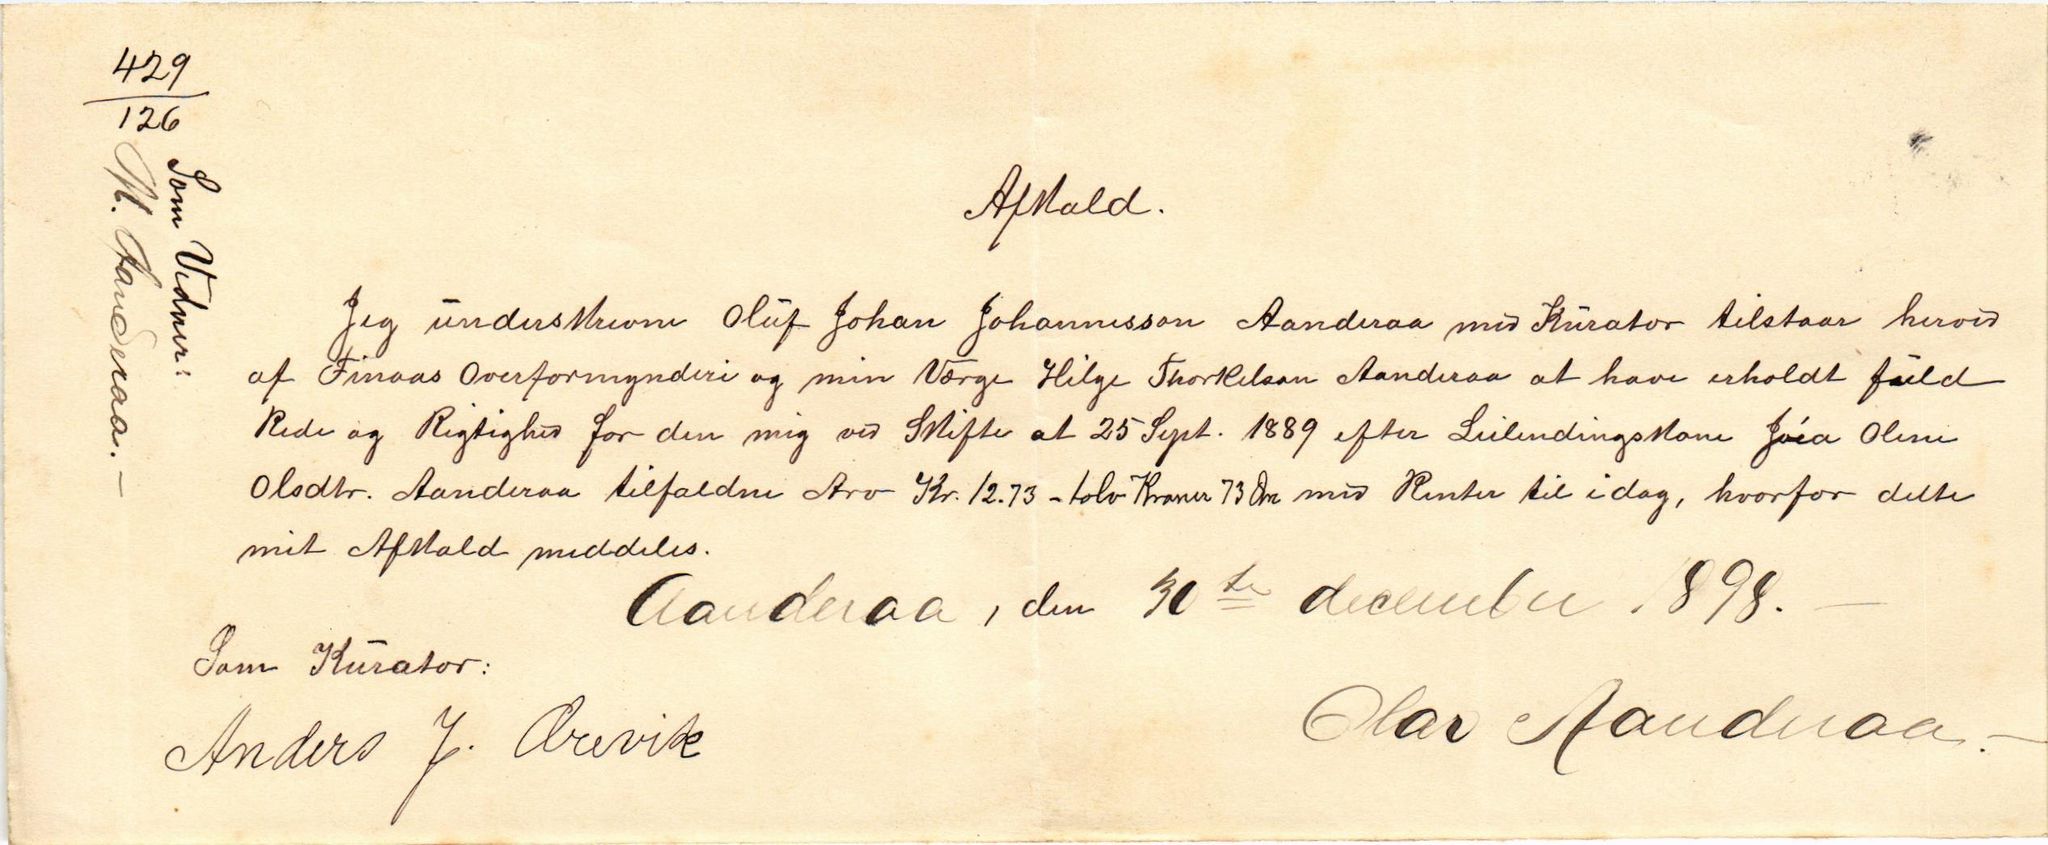 429
126
Som Vidner:
M. Aanderaa.—
Afkald.
Jeg underskrevne Oluf Johan Johannesson Aanderaa med Kurator tilstaar herved
af Finaas Overformynderi og min Værge Helge Thorkelson Aanderaa at have erholdt fuld
Rede og Rigtighed for den mig ved Skifte at 25 Sept. 1889 efter Leilendingskone Olene
Olsdtr. Aanderaa tilfaldne Arv Kr. 12.73 - tolv Kroner 73 Øre med Renter til idag, hvorfor dette
mit Afkald meddeles.
Aanderaa, den 30te december 1898.—
Som Kurator:
Anders J. Ørevik
Olav Aanderaa.—